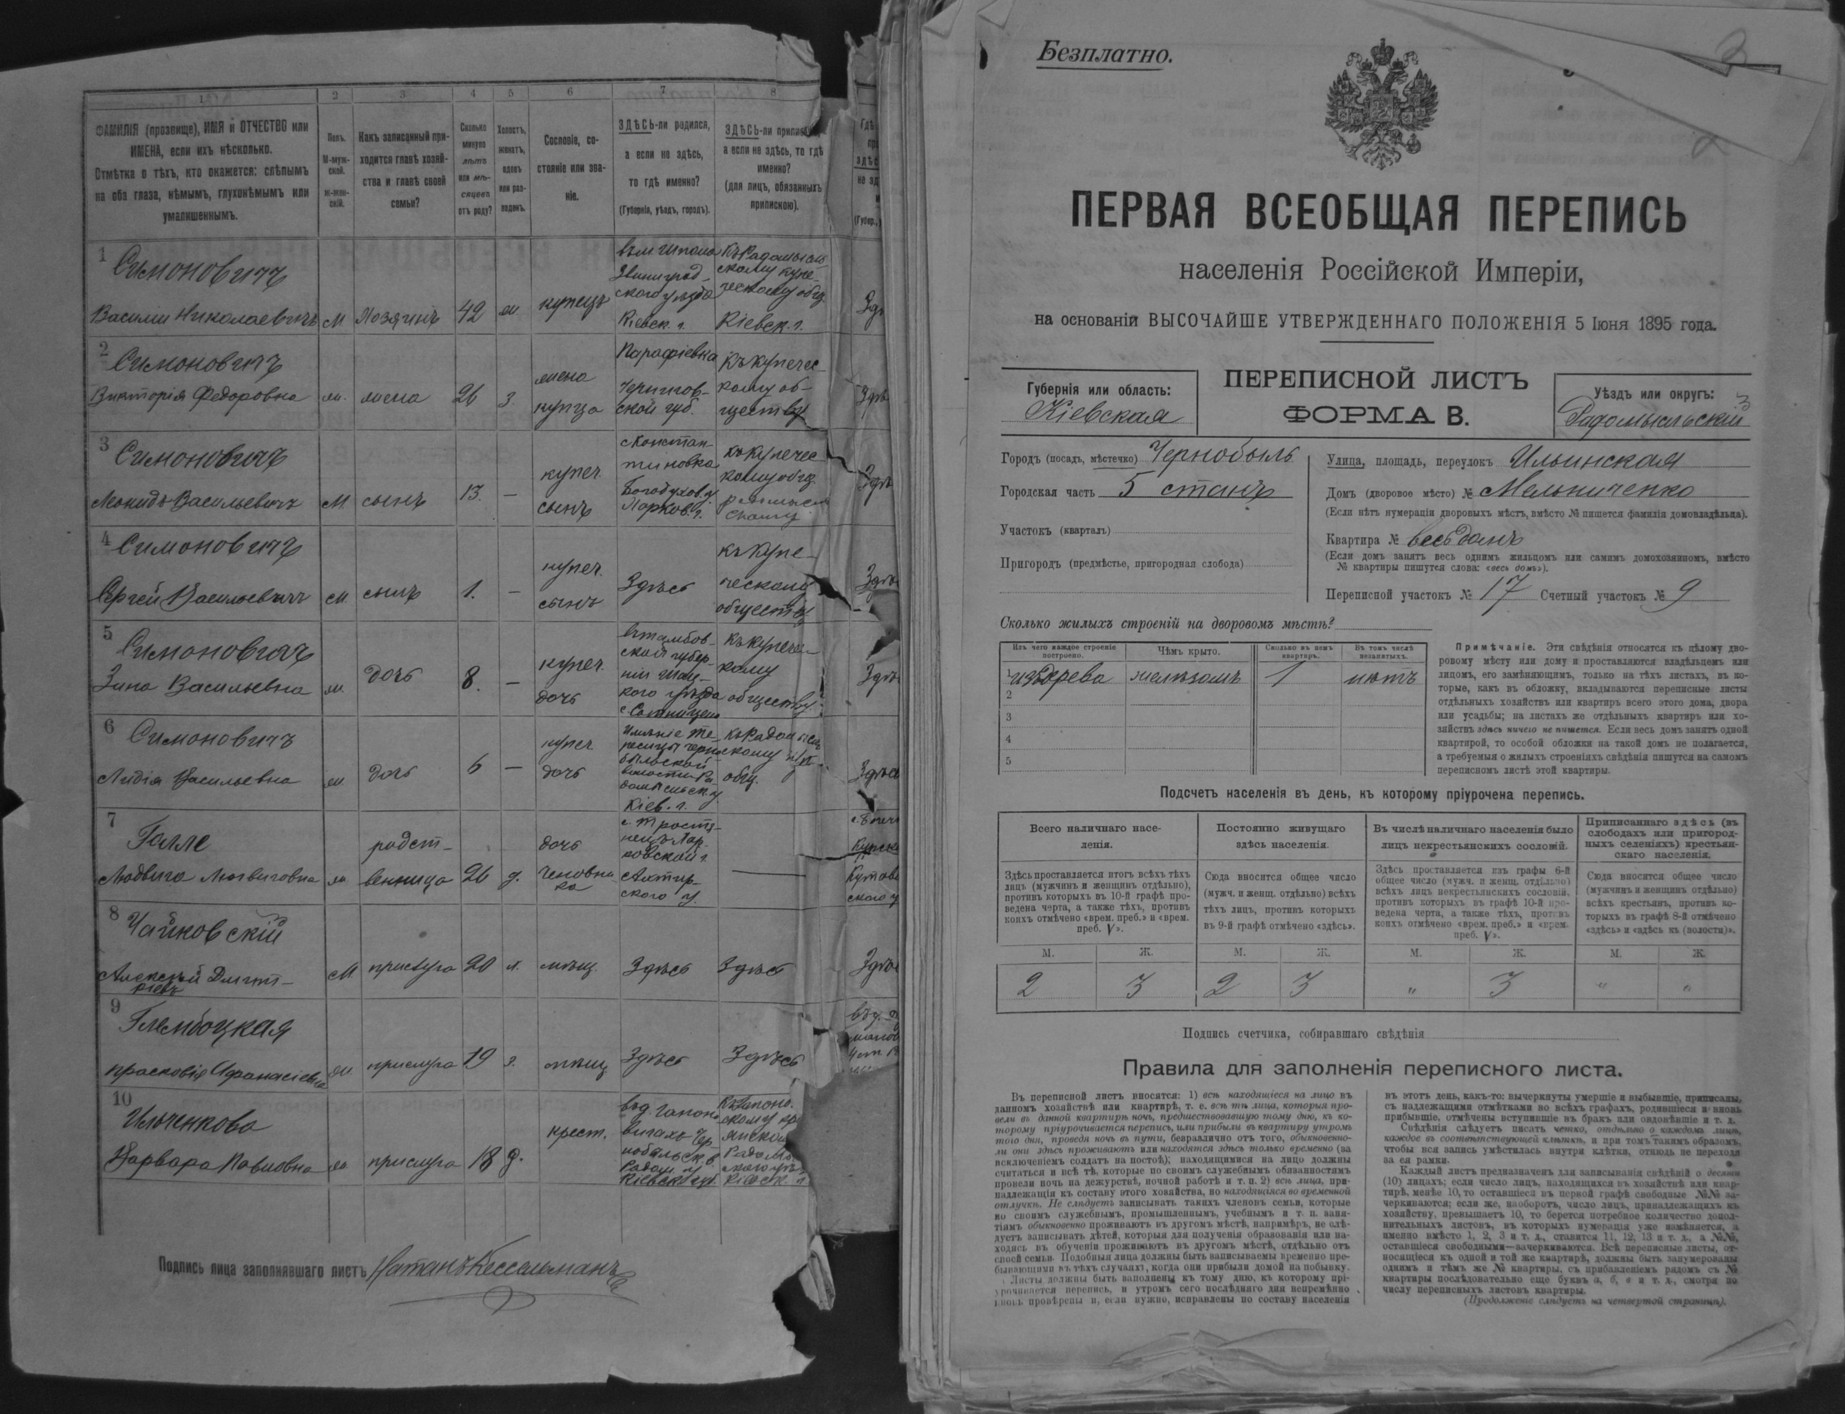 1 2 3 4 5 6 7 8
ФАМИЛІЯ (прозвище), ИМЯ и ОТЧЕСТВО или
ИМЕНА, если ихъ нѣсколько.
Отмѣтка о тѣхъ, кто окажется: слѣпымъ
на оба глаза, нѣмымъ, глухонѣмымъ или
умалишеннымъ.
Полъ.
М-муж-
ской.
ж-жен-
скій.
Какъ записанный при-
ходится главѣ хозяй-
ства и главѣ своей
семьи?
Сколько
минуло
лѣтъ
или мѣ-
сяцевъ
отъ роду?
Холостъ,
женатъ,
вдовъ
или раз-
веденъ.
Сословіе, со-
стояніе или зва-
ніе.
ЗДѢСЬ-ли родился,
а если не здѣсь,
то гдѣ именно?
(Губернія, уѣздъ, городъ).
ЗДѢСЬ-ли приписанъ,
а если не здѣсь, то гдѣ
именно?
(для лицъ, обязанныхъ
припискою).
1 Симоновичъ
Василій Николаевичъ
М
Хозяинъ
42
ж
купецъ
Звиниград-
скаго уѣзда
Кіевск. г.
Къ Радомысль
скому купе-
ческому общ.
Кіевск. г.
2 Симоновичъ
Викторія Федоровна
ж.
жена
26
з
жена
купца
Чернигов-
ской губ.
Къ купечес-
кому об-
ществу
3 Симоновичъ
Леонидъ Васильевичъ
М
сынъ
13.
—
купеч.
сынъ
с. Констан-
тиновка
Богодухов. у.
Харков. г.
Къ купечес
кому общ.
4 Симоновичъ
Сергѣй Васильевичъ
М.
сынъ
1.
—
купеч.
сынъ
Здѣсь
къ купе-
ческому
обществу
5 Симоновичъ
Зина Васильевна
ж.
дочь
8.
—
купеч.
дочь
въ тамбов-
ской губер-
ніи Шац-
кого уѣзда
къ купечес-
кому
обществу
6 Симоновичъ
Лидія Васильевна
ж.
дочь
6
—
купеч.
дочь
Кіев. г.
общ.
7 Галле
Людвига Людвиговна
ж.
родст-
венница
26
д.
дочь
чиновни-
ка
с. Трость-
нецъ Хар-
ковской г.
Ахтыр-
ского у.
8 Чайковскій
Алексѣй Дмитт-
ріевъ
М
прислуга
20
х.
мѣщ.
Здѣсь
Здѣсь
9 Глембоцкая
Прасковія Афанасіевна
ж
прислуга
19
мѣщ
Здѣсь
Здѣсь
10
Ильченкова
Варвара Павловна
ж
прислуга
18
д.
крест.
Подпись лица заполнявшаго листъ Натанъ Кессельманъ
Безплатно.
ПЕРВАЯ ВСЕОБЩАЯ ПЕРЕПИСЬ
населенія Россійской Имперіи,
на основаній ВЫСОЧАЙШЕ УТВЕРЖДЕННАГО ПОЛОЖЕНІЯ 5 Іюня 1895 года.
Губернія или область:
Кіевская
ПЕРЕПИСНОЙ ЛИСТЪ
ФОРМА В.
Уѣздъ или округъ:
Радомысльскій
Городъ (посадъ, мѣстечко) Чернобыль
Городская часть 5 станъ
Участокъ (кварталъ)
Пригородъ (предмѣстье, пригородная слобода)
Улица, площадь, переулокъ Ильинская
Домъ (дворовое мѣсто) № Мельниченко
(Если нѣтъ нумераціи дворовыхъ мѣстъ, вмѣсто № пишется фамилія домовладѣльца).
Квартира № весь домъ
(Если домъ занятъ весь однимъ жильцомъ или самимъ домохозяиномъ, вмѣсто
№ квартиры пишутся слова: «весь домъ»).
Переписной участокъ № 17 Счетный участокъ № 9
Сколько жилыхъ строеній на дворовомъ мѣстѣ?
Изъ чего каждое строеніе
построено.
Чѣмъ крыто.
Сколько въ немъ
квартиръ.
Въ томъ числѣ
незанятыхъ.
1 изъ дерева желѣзомъ 1 нѣтъ
2
3
4
5
Примѣчаніе. Эти свѣдѣнія относятся къ цѣлому дво-
ровому мѣсту или дому и проставляются владѣльцемъ или
лицомъ, его замѣняющимъ, только на тѣхъ листахъ, въ ко-
торые, какъ въ обложку, вкладываются переписные листы
отдѣльныхъ хозяйствъ или квартиръ всего этого дома, двора
или усадьбы; на листахъ же отдѣльныхъ квартиръ или хо-
зяйствъ здѣсь ничего не пишется. Если весь домъ занятъ одной
квартирой, то особой обложки на такой домъ не полагается,
а требуемыя о жилыхъ строеніяхъ свѣдѣнія пишутся на самомъ
переписномъ листѣ этой квартиры.
Подсчетъ населенія въ день, къ которому пріурочена перепись.
Всего наличнаго насе-
ленія.
Постоянно живущаго
здѣсь населенія.
Въ числѣ наличнаго населенія было
лицъ некрестьянскихъ сословій.
Приписаннаго здѣсь (въ
слободахъ или пригород-
ныхъ селеніяхъ) крестьян-
скаго населенія.
Здѣсь проставляется итогъ всѣхъ тѣхъ
лицъ (мужчинъ и женщинъ отдѣльно),
противъ которыхъ въ 10-й графѣ про-
ведена черта, а также тѣхъ, противъ
коихъ отмѣчено «врем. преб.» и «врем.
преб. V».
Сюда вносится общее число
(мужч. и женщ. отдѣльно) всѣхъ
тѣхъ лицъ, противъ которыхъ
въ 9-й графѣ отмѣчено «здѣсь».
Здѣсь проставляется изъ графы 6-й
общее число (мужч. и женщ. отдѣльно)
всѣхъ лицъ некрестьянскихъ сословій,
противъ которыхъ, въ графѣ 10-й про-
ведена черта, а также тѣхъ, противъ
коихъ отмѣчено «врем. преб.» и «врем.
преб. V».
Сюда вносится общее число
(мужчинъ и женщинъ отдѣльно)
всѣхъ крестьянъ, противъ ко-
торыхъ въ графѣ 8-й отмѣчено
«здѣсь» и «здѣсь къ (волости)».
М. Ж. М. Ж. М. Ж. М. Ж.
2 3 2 3 „ 3 „ „
Подпись счетчика, собиравшаго свѣдѣнія
Правила для заполненія переписного листа.
Въ переписной листъ вносятся: 1) всѣ находящіеся на лицо въ
данномъ хозяйствѣ или квартирѣ, т. е. всѣ тѣ лица, которыя про-
вели въ данной квартирѣ ночь, предшествовавшую тому дню, къ ко-
торому пріурочивается перепись, или прибыли въ квартиру утромъ
того дня, проведя ночь въ пути, безразлично отъ того, обыкновенно-
ли они здѣсь проживаютъ или находятся здѣсь только временно (за
исключеніемъ солдатъ на постоѣ); находящимися на лицо должны
считаться и всѣ тѣ, которые по своимъ служебнымъ обязанностямъ
провели ночь на дежурствѣ, ночной работѣ и т. п. 2) всѣ лица, при-
надлежащія къ составу этого хозяйства, но находящіяся во временной
отлучкѣ. Не слѣдуетъ записывать такихъ членовъ семьи, которые
по своимъ служебнымъ, промышленнымъ, учебнымъ и т. п. заня-
тіямъ обыкновенно проживаютъ въ другомъ мѣстѣ, напримѣръ, не слѣ-
дуетъ записывать дѣтей, которыя для полученія образованія или на-
ходясь въ обученіи проживаютъ въ другомъ мѣстѣ, отдѣльно отъ
своей семьи. Подобныя лица должны быть записываемы временно пре-
бывающими въ тѣхъ случаяхъ, когда они прибыли домой на побывку.
Листы должны быть заполнены къ тому дню, къ которому прі-
урочивается перепись, и утромъ сего послѣдняго дня непремѣнно
вновь провѣрены и, если нужно, исправлены по составу населенія
въ этотъ день, какъ-то: вычеркнуты умершіе и выбывшіе, приписаны,
съ надлежащими отмѣтками во всѣхъ графахъ, родившіеся и вновь
прибывшіе, отмѣчены вступившіе въ бракъ или овдовѣвшіе и т. д.
Свѣдѣнія слѣдуетъ писать четко, отдѣльно о каждомъ лицѣ,
каждое въ соотвѣтствующей клѣткѣ, и при томъ такимъ образомъ,
чтобы вся запись умѣстилась внутри клѣтки, отнюдь не переходя
за ея рамки.
Каждый листъ предназначенъ для записыванія свѣдѣній о десяти
(10) лицахъ; если число лицъ, находящихся въ хозяйствѣ или квар-
тирѣ, менѣе 10, то оставшіеся въ первой графѣ свободные №№ за-
черкиваются; если же, наоборотъ, число лицъ, принадлежащихъ къ
хозяйству, превышаетъ 10, то берется потребное количество допол-
нительныхъ листовъ, въ которыхъ нумерація уже измѣняется, а
именно вмѣсто 1, 2, 3 и т. д., ставятся 11, 12, 13 и т. д., а №№,
оставшіеся свободными—зачеркиваются. Всѣ переписные листы, от-
носящіеся къ одной и той же квартирѣ, должны быть занумерованы
однимъ и тѣмъ же № квартиры, съ прибавленіемъ рядомъ съ №
квартиры послѣдовательно еще буквъ а, б, в и т. д., смотря по
числу переписныхъ листовъ квартиры.
(Продолженіе слѣдуетъ на четвертой страницѣ).